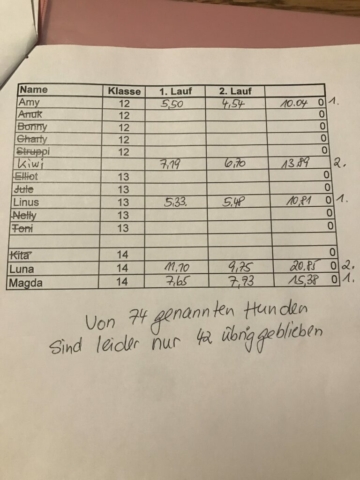 Name Klasse 1. Lauf 2. Lauf
Amy 12 5,50 4,54 10.04 0 1.
Anuk 12 0
Bonny 12 0
Charly 12 0
Struppi 12 0
Kiwi 7,19 6,70 13.89 2.
Elliot 13 0
Jule 13 0
Linus 13 5.33 5,48 10,81 0 1.
Nelly 13 0
Toni 13 0
Kita 14 0
Luna 14 11,10 9,75 20,85 0 2.
Magda 14 7,65 7,73 15,38 0 1.
Von 74 genannten Hunden
Sind leider nur 42 übriggeblieben